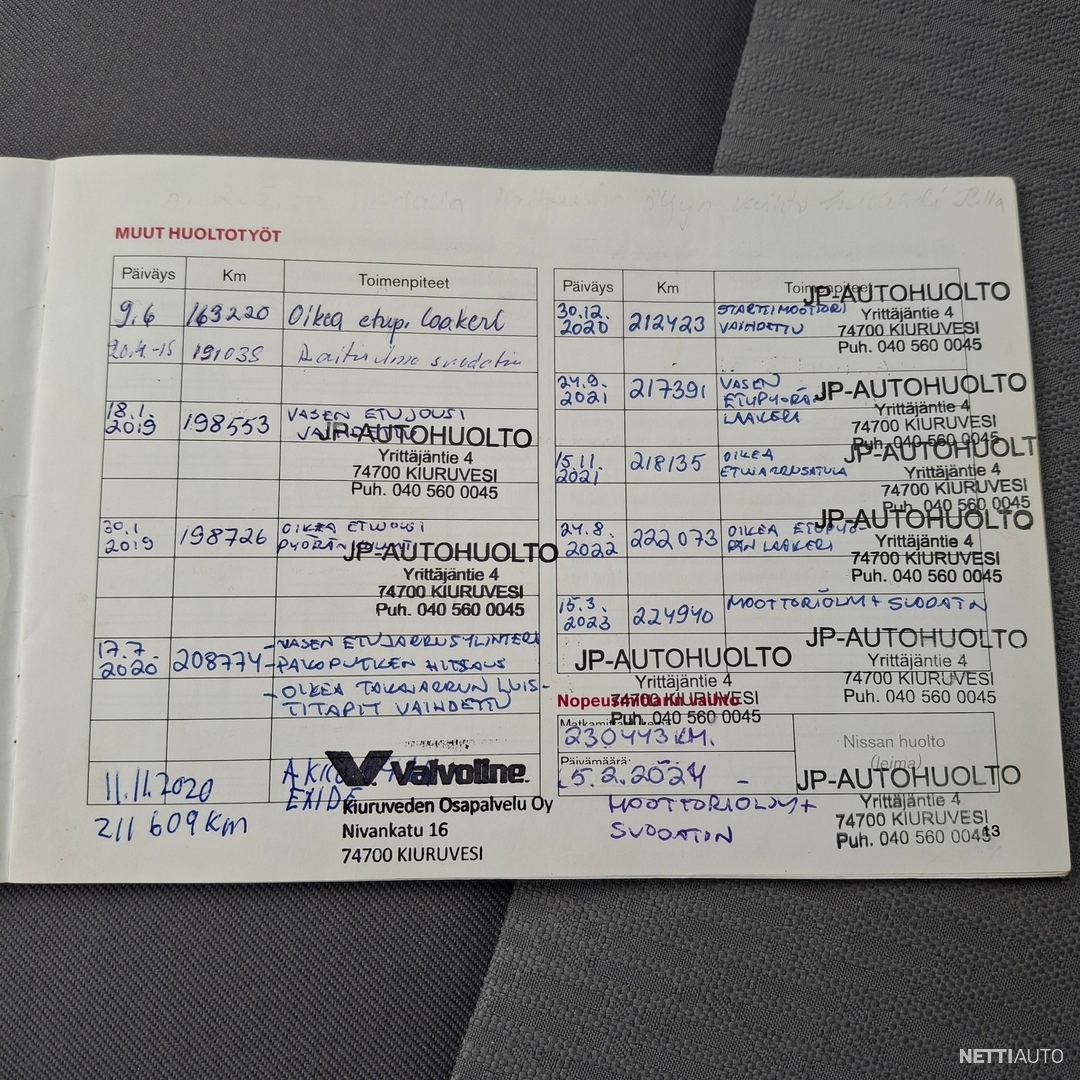 MUUT HUOLTOTYÖT
Päiväys Km Toimenpiteet
9.6 163220 Oikea etup. laakeri
20.4.-15 191038 Raitisilma suodatin
18.1. 2019 198553 VASEN ETUJOUSI
VAIHDETTU
JP-AUTOHUOLTO
Yrittäjäntie 4
74700 KIURUVESI
Puh. 040 560 0045
30.1 2019 198726 OIKEA ETUJOUSI
JP-AUTOHUOLTO
Yrittäjäntie 4
74700 KIURUVESI
Puh. 040 560 0045
17.7. 2020 208774 - VASEN ETUJARRUSYLINTERI
- PAKOPUTKEN HITSAUS
- OIKEA TAKAJARRUN LUIS-
TITAPIT VAIHDETTU
JP-AUTOHUOLTO
Yrittäjäntie 4
74700 KIURUVESI
Puh. 040 560 0045
11.11.2020
211 609 KM
EXIDE
Valvoline
Kiuruveden Osapalvelu Oy
Nivankatu 16
74700 KIURUVESI
Päiväys Km Toimenpiteet
30.12. 2020 212423 STARTTIMOOTTORI
VAIHDETTU
JP-AUTOHUOLTO
Yrittäjäntie 4
74700 KIURUVESI
Puh. 040 560 0045
24.9. 2021 217391 VASEN
ETUPYÖRÄN
LAAKERI
JP-AUTOHUOLTO
Yrittäjäntie 4
74700 KIURUVESI
Puh. 040 560 0045
15.11. 2021 218135 OIKEA
ETUJARRUSATULA
JP-AUTOHUOLTO
Yrittäjäntie 4
74700 KIURUVESI
Puh. 040 560 0045
24.8. 2022 222 073 OIKEA ETUPYÖ-
RÄN LAAKERI
JP-AUTOHUOLTO
Yrittäjäntie 4
74700 KIURUVESI
Puh. 040 560 0045
15.3. 2023 224940 MOOTTORIÖLJY + SUODATIN
JP-AUTOHUOLTO
Yrittäjäntie 4
74700 KIURUVESI
Puh. 040 560 0045
Nopeusmittarin vaihto
230443 KM.
Päivämäärä:
15.2.2024 -
MOOTTORIÖLJY +
SUODATIN
Nissan huolto
(leima)
JP-AUTOHUOLTO
Yrittäjäntie 4
74700 KIURUVESI
Puh. 040 560 0045
13
NETTIAUTO